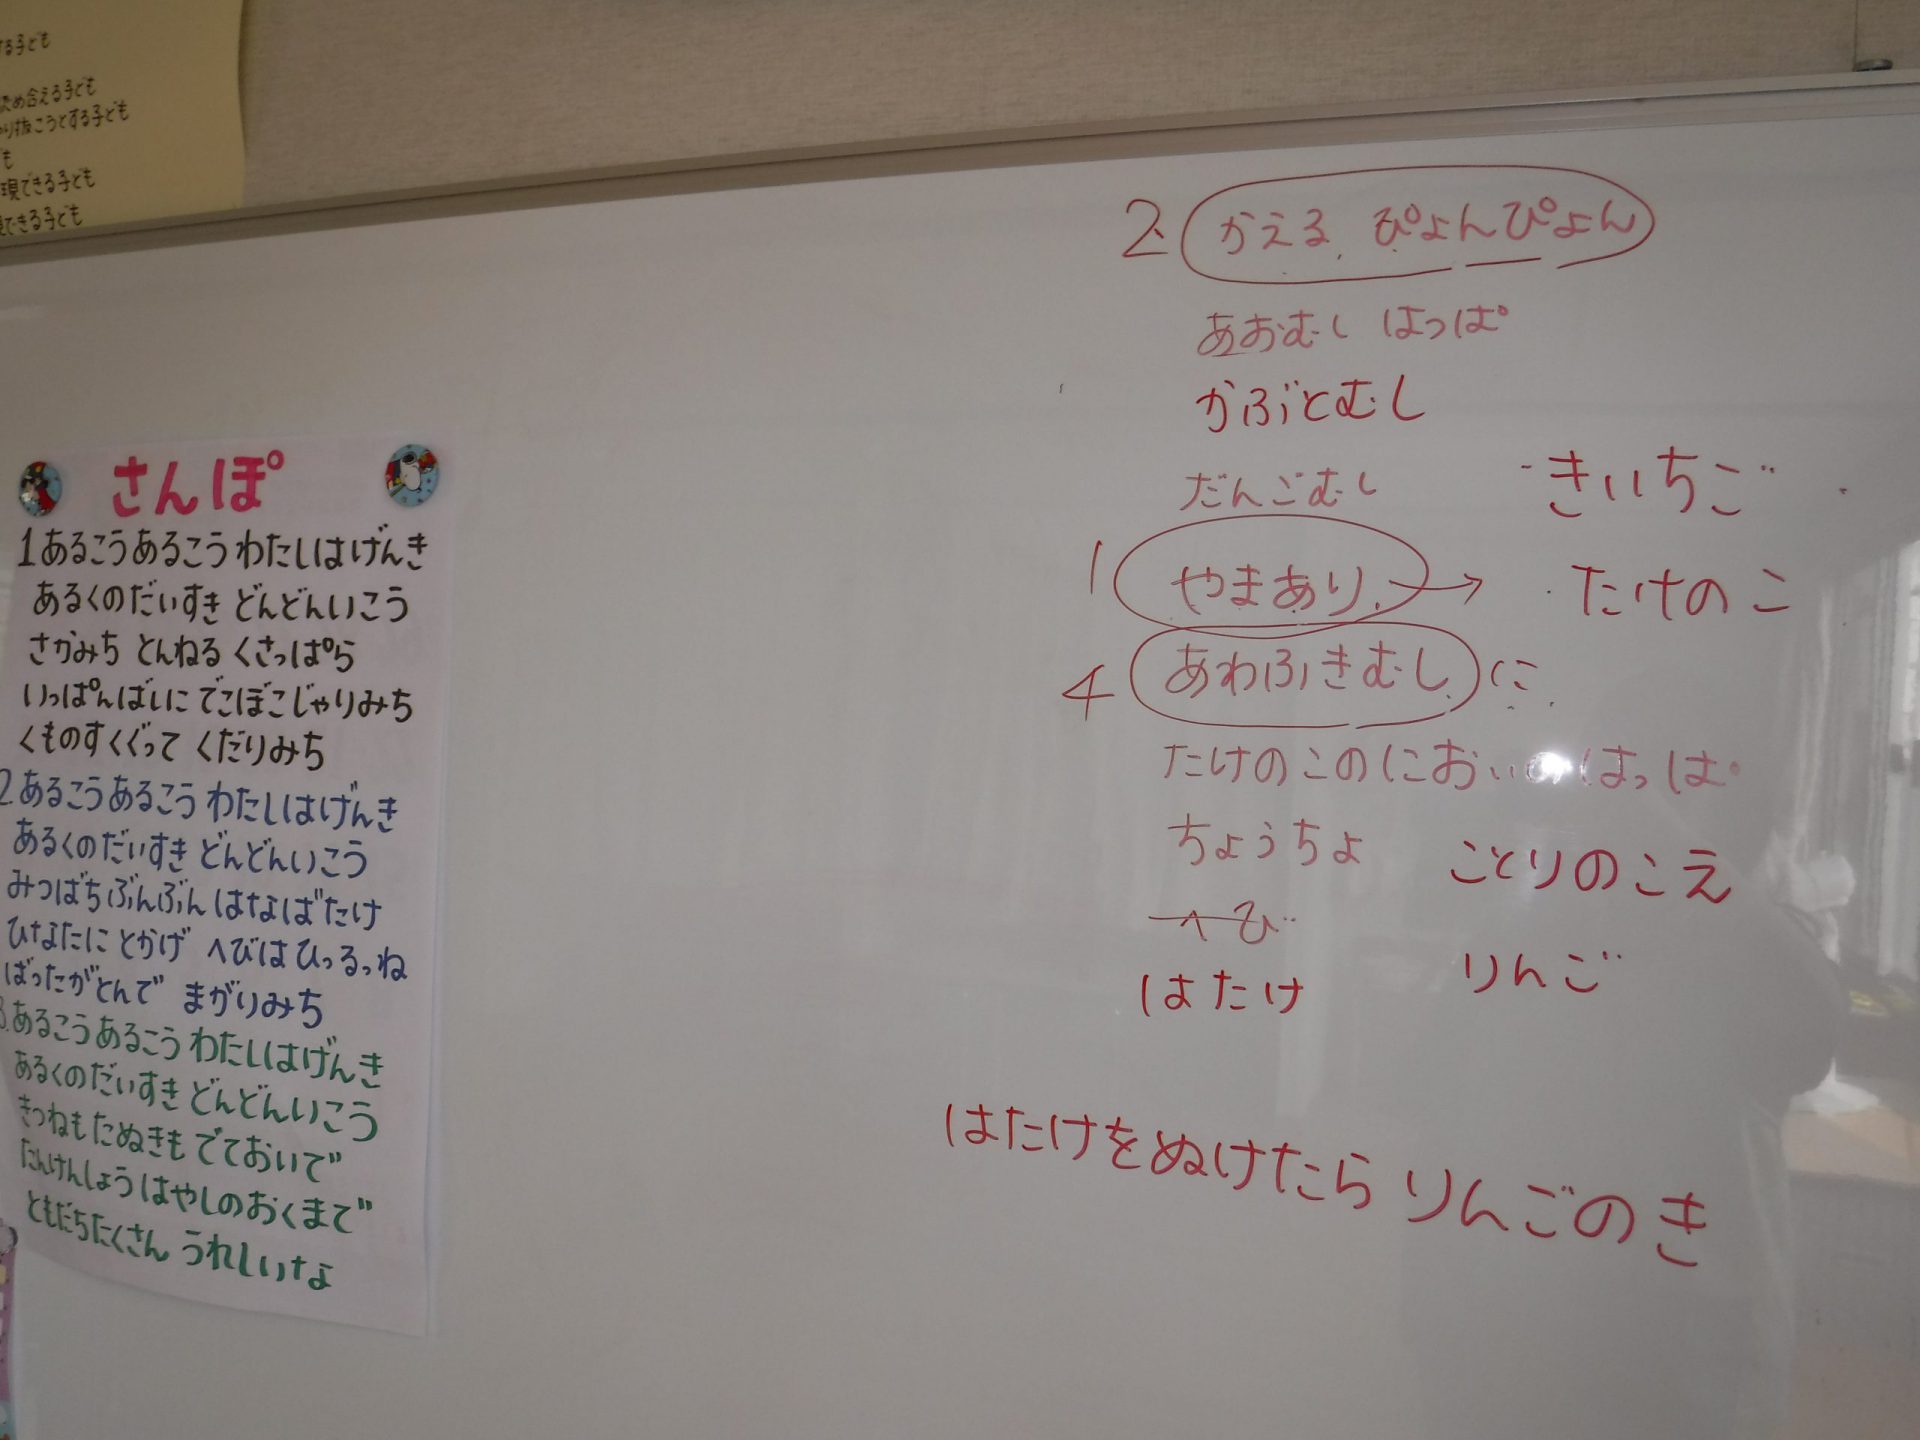 する子ども
認め合える子ども
やり抜こうとする子ども
も
現できる子ども
できる子ども
さんぽ
1あるこうあるこう わたしはげんき
あるくのだいすき どんどんいこう
さかみち とんねる くさっぱら
いっぽんばしに でこぼこじゃりみち
くものすくぐって くだりみち
2.あるこうあるこう わたしはげんき
あるくのだいすき どんどんいこう
みつばちぶんぶん はなばたけ
ひなたに とかげ へびは ひっるっね
ばったがとんで まがりみち
3.あるこうあるこう わたしはげんき
あるくのだいすき どんどんいこう
きつねも たぬきも でておいで
たんけんしよう はやしのおくまで
ともだちたくさん うれしいな
2 かえる ぴょんぴょん
あおむし はっぱ
かぶとむし
だんごむし
きいちご
1 やまあり → たけのこ
4 あわふきむし に
たけのこのにおいのはっぱ
ちょうちょ ことりのこえ
へび
はたけ りんご
はたけをぬけたら りんごのき